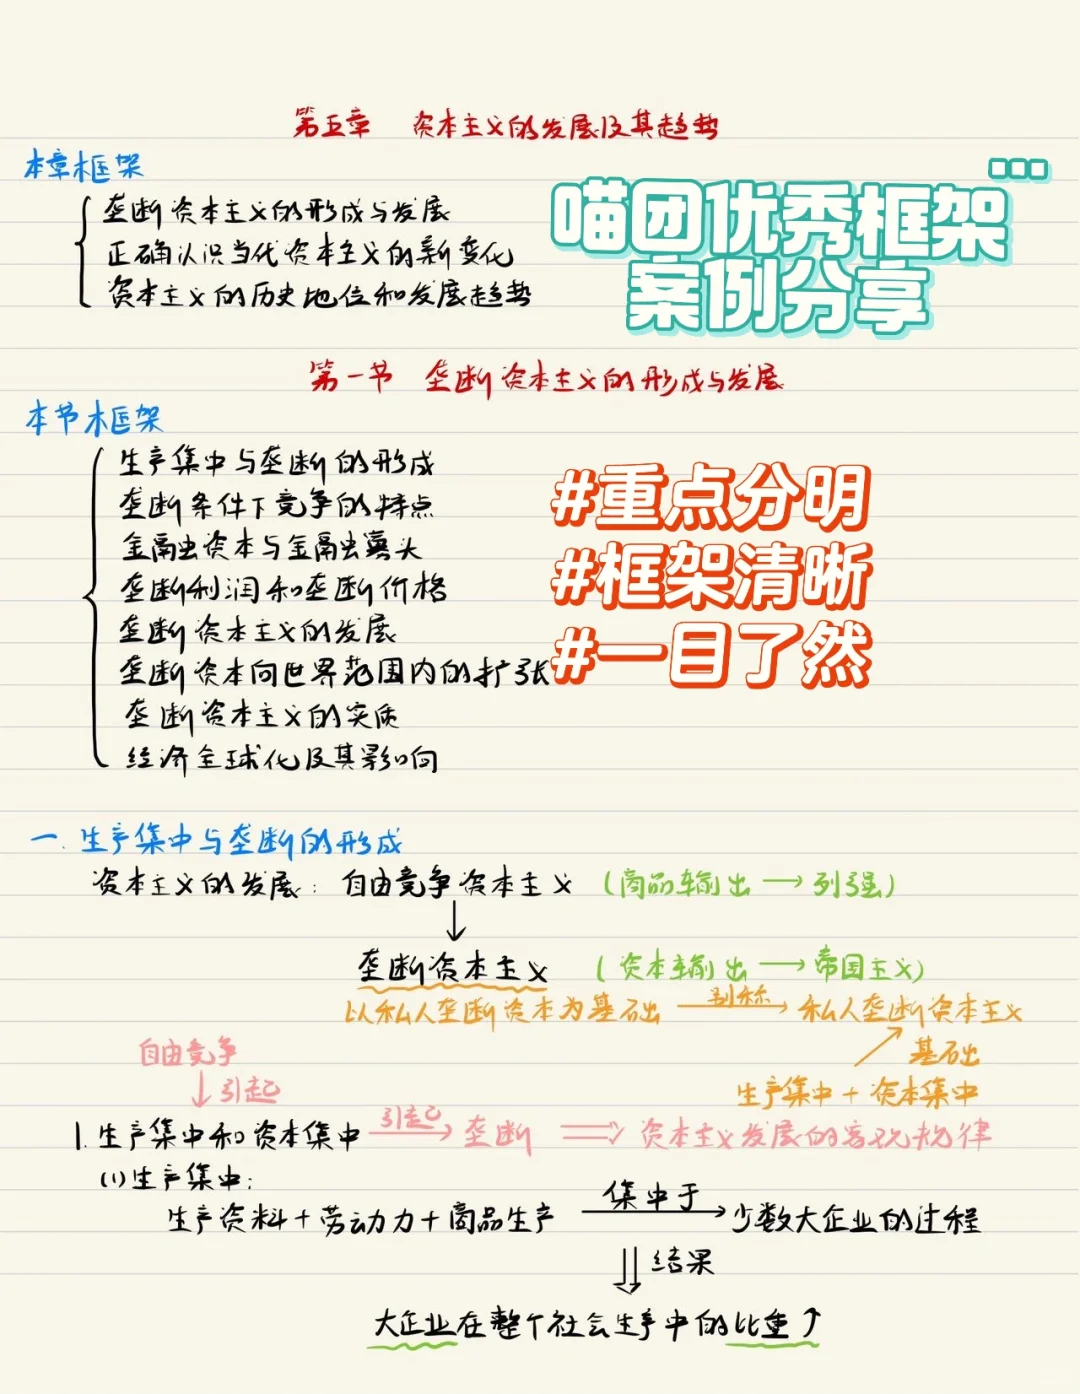 第五章 资本主义的发展及其趋势
本章框架
垄断资本主义的形成与发展
正确认识当代资本主义的新变化
资本主义的历史地位和发展趋势
喵团优秀框架...
案例分享
第一节 垄断资本主义的形成与发展
本节框架
生产集中与垄断的形成
垄断条件下竞争的特点
金融资本与金融寡头
垄断利润和垄断价格
垄断资本主义的发展
垄断资本向世界范围内的扩张
垄断资本主义的实质
经济全球化及其影响
#重点分明
#框架清晰
#一目了然
一.生产集中与垄断的形成
资本主义的发展: 自由竞争资本主义 (商品输出→列强)
↓
垄断资本主义 (资本输出→帝国主义)
以私人垄断资本为基础 别称→ 私人垄断资本主义
自由竞争 基础
↓引起 生产集中+资本集中
1.生产集中和资本集中 引起→ 垄断 ⇒ 资本主义发展的客观规律
(1)生产集中:
生产资料+劳动力+商品生产 集中于→ 少数大企业的过程
⇓结果
大企业在整个社会生产中的比重↑